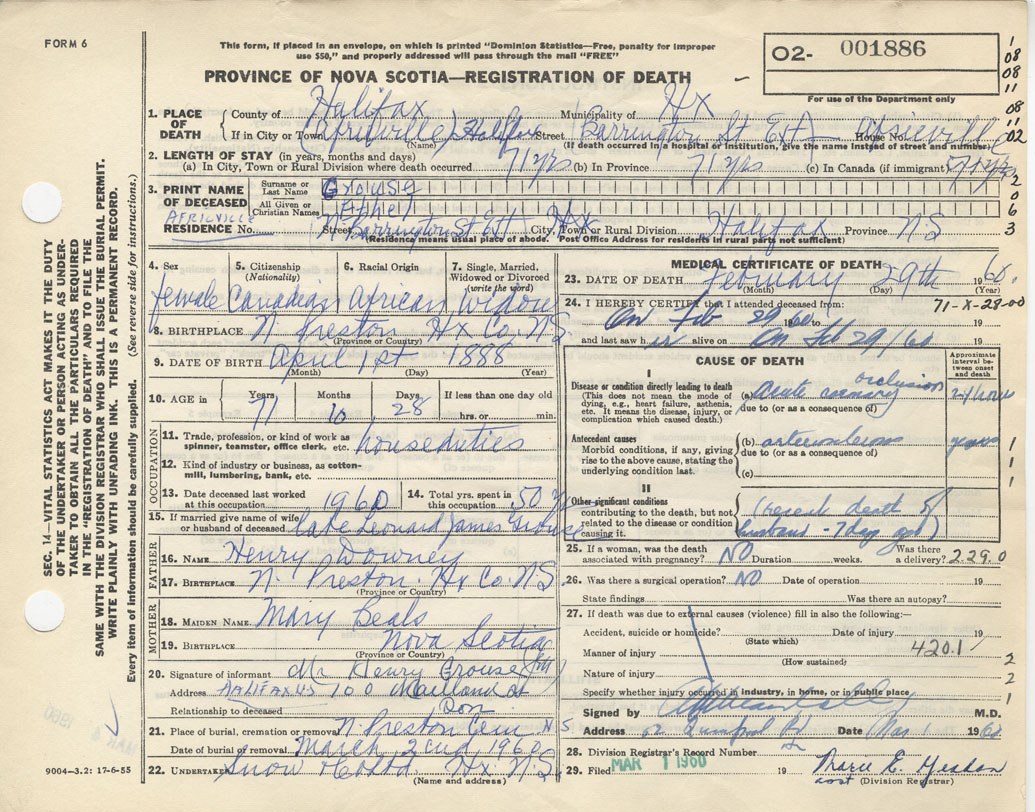 FORM 6
This form, if placed in an envelope, on which is printed "Dominion Statistics—Free, penalty for improper
use $50," and properly addressed will pass through the mail "FREE"
O2- 001886
For use of the Department only
PROVINCE OF NOVA SCOTIA—REGISTRATION OF DEATH
1. PLACE OF DEATH
County of Halifax Municipality of Hx
If in City or Town (Africville) Halifax Street Barrington St Ext House No. Africville
(Name) (If death occurred in a hospital or institution, give the name instead of street and number)
2. LENGTH OF STAY (in years, months and days)
(a) In City, Town or Rural Division where death occurred 71 yrs (b) In Province 71 yrs (c) In Canada (if immigrant) 71 yrs
3. PRINT NAME OF DECEASED
Surname or Last Name Grouse
All Given or Christian Names Ethel
AFRICVILLE
RESIDENCE No. N Barrington St Ext City, Town or Rural Division Hx Halifax Province NS
(Residence means usual place of abode. Post Office Address for residents in rural parts not sufficient)
4. Sex female
5. Citizenship (Nationality) Canadian
6. Racial Origin African
7. Single, Married, Widowed or Divorced (write the word) Widow
8. BIRTHPLACE N. Preston Hx Co. N.S.
(Province or Country)
9. DATE OF BIRTH April 1st 1888
(Month) (Day) (Year)
10. AGE in Years 71 Months 10 Days 28 If less than one day old hrs. or min.
OCCUPATION
11. Trade, profession, or kind of work as spinner, teamster, office clerk, etc. house duties
12. Kind of industry or business, as cotton-mill, lumbering, bank, etc.
13. Date deceased last worked at this occupation 1960
14. Total yrs. spent in this occupation 50 yrs
15. If married give name of wife or husband of deceased late Leonard James Grouse
FATHER
16. NAME Henry Downey
17. BIRTHPLACE N. Preston. Hx Co. N S
(Province or Country)
MOTHER
18. MAIDEN NAME Mary Beals
19. BIRTHPLACE Nova Scotia
(Province or Country)
20. Signature of informant Mr Henry Grouse
Address HALIFAX NS 100 Maitland St
Relationship to deceased Son
21. Place of burial, cremation or removal N. Preston Cem N.S.
Date of burial or removal March 2nd, 1960
22. UNDERTAKER Snow & Co Ltd Hx N.S.
(Name and address)
MEDICAL CERTIFICATE OF DEATH
23. DATE OF DEATH February 29th 1960
(Month) (Day) (Year)
24. I HEREBY CERTIFY that I attended deceased from: 71-X-28-00
On Feb 29 1960 to 19
and last saw her alive on On Feb 29/60 19
CAUSE OF DEATH
Approximate interval between onset and death
I
Disease or condition directly leading to death
(This does not mean the mode of dying, e.g., heart failure, asthenia, etc. It means the disease, injury, or complication which caused death.)
(a) Acute coronary occlusion
due to (or as a consequence of)
Antecedent causes
Morbid conditions, if any, giving rise to the above cause, stating the underlying condition last.
(b) arteriosclerosis years
due to (or as a consequence of)
(c)
II
Other significant conditions
contributing to the death, but not related to the disease or condition causing it.
(recent death of
husband - 7 day ago)
25. If a woman, was the death associated with pregnancy? NO Duration weeks. Was there a delivery? 229.0
26. Was there a surgical operation? NO Date of operation 19
State findings Was there an autopsy?
27. If death was due to external causes (violence) fill in also the following:—
Accident, suicide or homicide? Date of injury 19
(State which)
Manner of injury 420.1
(How sustained)
Nature of injury
Specify whether injury occurred in industry, in home, or in public place
Signed by M.D.
Address 62 Quinpool Rd Date Mar 1 1960
28. Division Registrar's Record Number
29. Filed MAR 1 1960 19 Marie E.
(Division Registrar)
SEC. 14—VITAL STATISTICS ACT MAKES IT THE DUTY
OF THE UNDERTAKER OR PERSON ACTING AS UNDER-
TAKER TO OBTAIN ALL THE PARTICULARS REQUIRED
IN THE "REGISTRATION OF DEATH" AND TO FILE THE
SAME WITH THE DIVISION REGISTRAR WHO SHALL ISSUE THE BURIAL PERMIT.
WRITE PLAINLY WITH UNFADING INK. THIS IS A PERMANENT RECORD.
Every item of information should be carefully supplied. (See reverse side for instructions.)
9004—3.2: 17-6-55
1
08
08
11
08
11
02
2
0
6
3
1
1
1
2
2
1